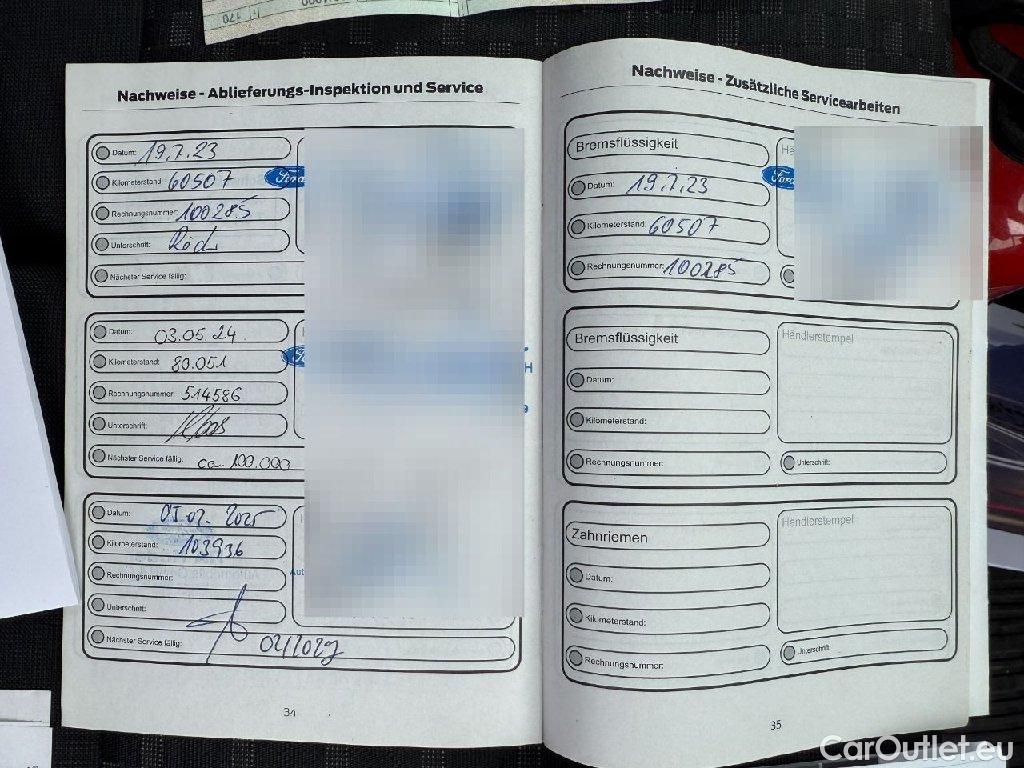 Nachweise - Ablieferungs-Inspektion und Service
Datum: 19.7.23
Kilometerstand: 60507
Ford
Rechnungsnummer: 100285
Unterschrift:
Nächster Service fällig:
Datum: 03.05.24
Kilometerstand: 80.051
Rechnungsnummer: 514586
Unterschrift:
Nächster Service fällig: ca. 100.000
Datum: 01.02.2025
Kilometerstand: 103936
Rechnungsnummer:
Unterschrift:
Nächster Service fällig:
34
Nachweise - Zusätzliche Servicearbeiten
Bremsflüssigkeit
Datum: 19.7.23
Ford
Kilometerstand: 60507
Rechnungsnummer: 100285
Bremsflüssigkeit
Händlerstempel
Datum:
Kilometerstand:
Rechnungsnummer:
Unterschrift:
Zahnriemen
Händlerstempel
Datum:
Kilometerstand:
Rechnungsnummer:
Unterschrift:
35
CarOutlet.eu